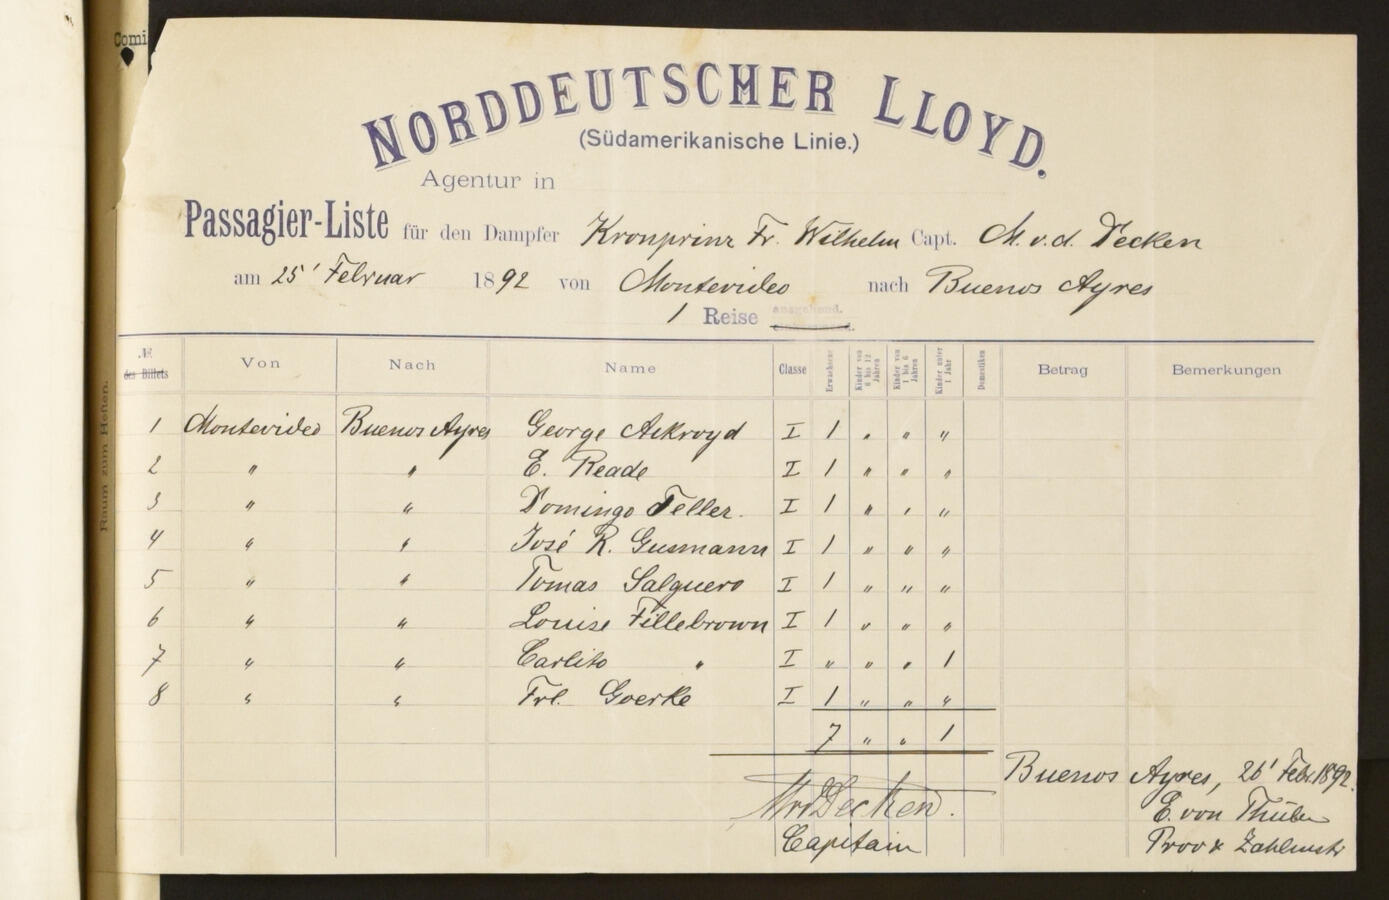 Comi
NORDDEUTSCHER LLOYD.
(Südamerikanische Linie.)
Agentur in
Passagier-Liste für den Dampfer Kronprinz Fr. Wilhelm Capt. M. v. d. Decken
am 25' Februar 1892 von Montevideo nach Buenos Ayres
1 Reise ausgehend.
einkommend.
№ des Billets Von Nach Name Classe Erwachsene Kinder von 6 bis 12 Jahren Kinder von 1 bis 6 Jahren Kinder unter 1 Jahr Domestiken Betrag Bemerkungen
1 Montevideo Buenos Ayres George Ackroyd I 1 " " "
2 " " E. Reade I 1 " " "
3 " " Domingo Teller. I 1 " " "
4 " " José R. Gusmann I 1 " " "
5 " " Tomas Salguero I 1 " " "
6 " " Louise Fillebrown I 1 " " "
7 " " Carlito " I " " " 1
8 " " Frl. Goerke I 1 " " "
7 " " 1
Buenos Ayres, 26' Febr. 1892.
MvdDecken.
E. von
Capitain
Prov & Zahlmstr
Raum zum Heften.